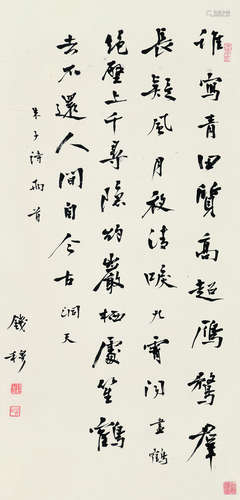 誰寫青田質高超鴈鶩羣
長疑風月夜清唳九霄聞畫鶴
絕壁上千尋隱約巖栖處笙鶴
去不還人間自今古洞天
朱子詩兩首
錢穆